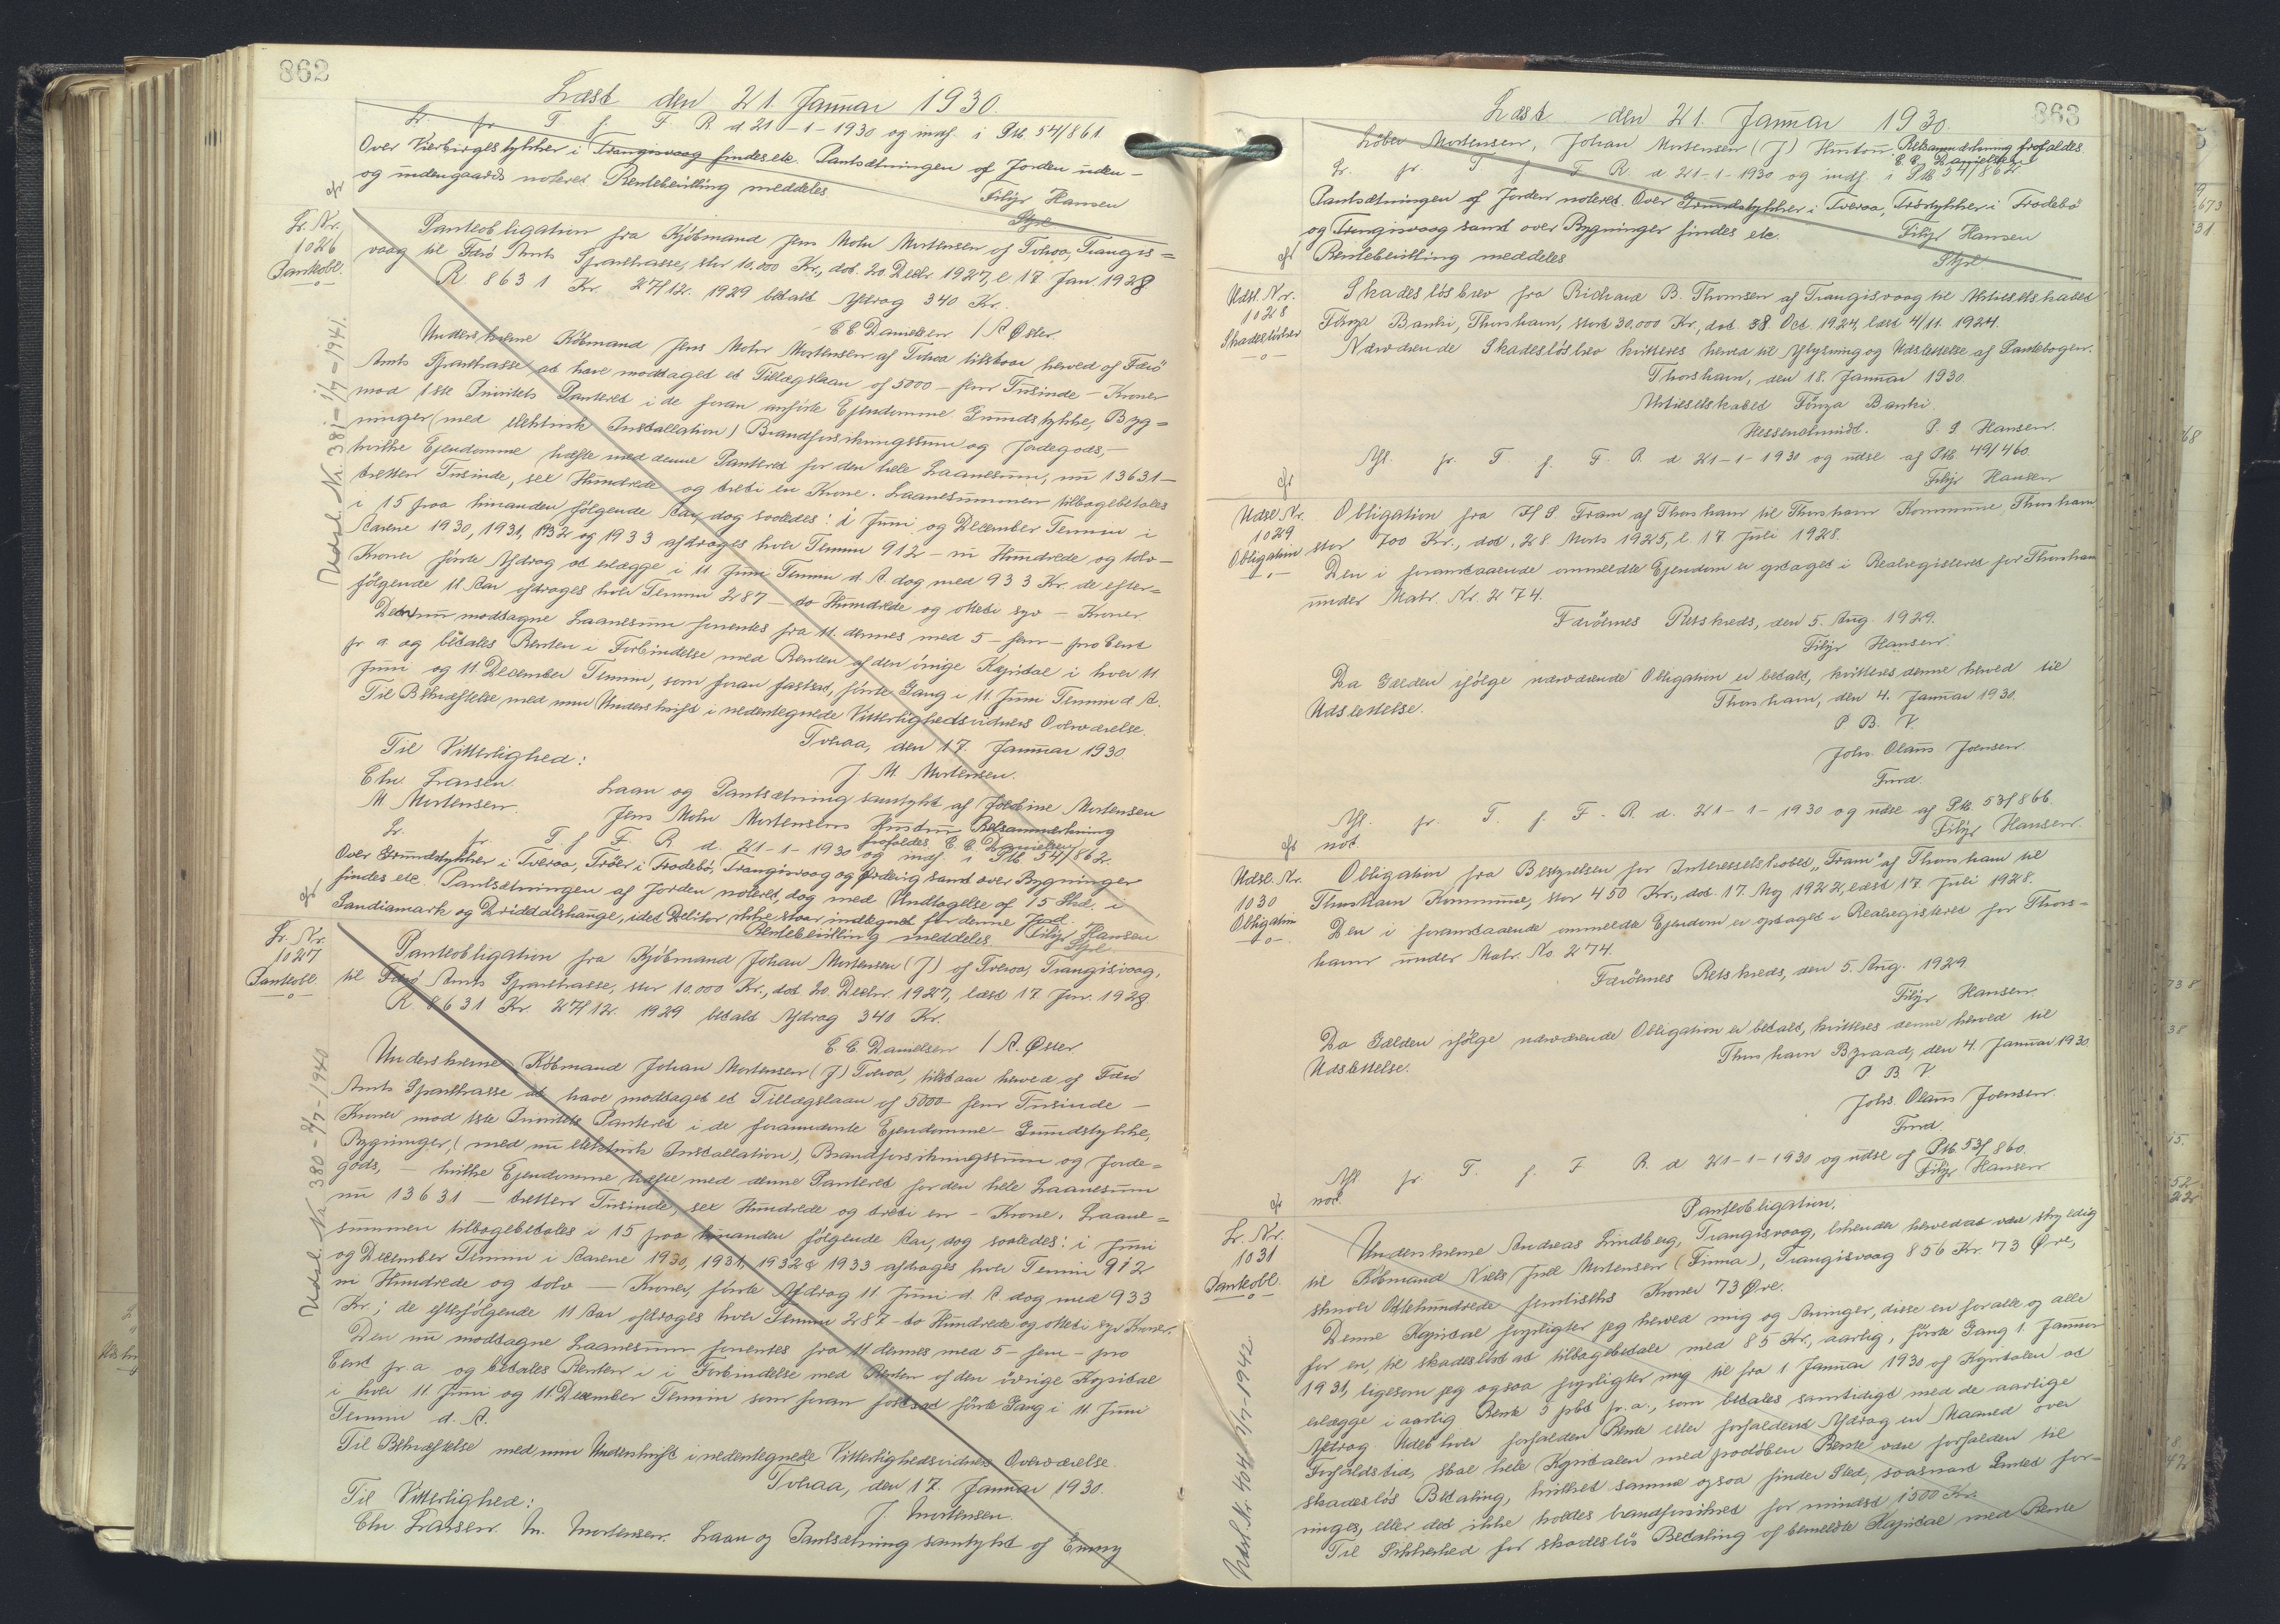 862
Læst den 21. Januar 1930.
Lr. pr. T. f. F. R. d. 21-1-1930 og indf. i Ptb. 54/861.
Over Kierbirgestykker i Trangisvaag findes etc. Pantsætningen af Jorden uden-
og indengaards noteret Rentebevilling meddeles
Filip Hansen
Styrl
Lr. Nr.
1026
Panteobl.
Panteobligation fra Kjøbmand Jens Mohr Mortensen af Tvøroa, Trangis=
vaag til Færø Amts Sparekasse, stor 10.000 Kr., dat. 20. Decbr. 1927, l. 17 Jan. 1928
R. 8631 Kr. 27/12. 1929 betalt Afdrag 340 Kr.
C. C. Danielsen / A. Øster.
Underskrevne Købmand Jens Mohr Mortensen af Tvøroa tilstaar herved af Færø
Amts Sparekasse at have modtaget et Tillægslaan af 5000 - fem Tusinde - Kroner
mod 1ste Prioritets Panteret i de foran anførte Ejendomme Grundstykke, Byg=
ninger (med elektrisk Installation) Brandforsikringssum og Jordegods, -
hvilke Ejendomme hæfte med denne Panteret for den hele Laanesum, nu 13631 -
tretten Tusinde, sex Hundrede og treti en Krone. Laanesummen tilbagebetales
i 15 paa hinanden følgende Aar, dog saaledes: i Juni og December Termin i
Aarene 1930, 1931, 1932 og 1933 afdrages hver Termin 912 - ni Hundrede og tolv -
Kroner første Afdrag at erlægge i 11. Juni Termin d. A. dog med 933 Kr. de efter=
følgende 11 Aar afdrages hver Termin 287 - to Hundrede og otteti syv - Kroner
Den nu modtagne Laanesum forrentes fra 11. dennes med 5 - fem - pro Cent
pr. a. og betales Renten i Forbindelse med Renten af den øvrige Kapital i hver 11.
Juni og 11 December Termin, som foran fastsat, første Gang i 11. Juni Termin d. A.
Til Bekræftelse med min Underskrift i nedentegnede Vitterlighedsvidners Overværelse.
Tvøraa, den 17. Januar 1930.
Til Vitterlighed:
J. M. Mortensen.
Chr. Larsen.
Laan og Pantsætning samtykt af Jens Mohr Mortensens Hustru
M. Mortensen.
Retsanmærkning
frafaldes. C. C. Danielsen
Lr. pr. T. f. F. R. d. 21-1-1930 og indf. i Ptb 54/862.
Over Grundstykker i Tveroa, Trøer i Frodebø, Trangisvaag og Ørdevig samt over Bygninger
findes etc. Pantsætningen af Jorden noteret, dog med Undtagelse af 15 Skd. i
Sandiamark og idet Debitor ikke staar indtegnet for denne Jord.
Rentebevilling meddeles Filip Hansen
Styrl
Udsl. Nr. 381 - 1/7 - 1941.
Lr. Nr.
1027
Panteobl.
Panteobligation fra Kjøbmand Johan Mortensen (J) af Tveroa, Trangisvaag,
til Færø Amts Sparekasse, stor 10.000 Kr., dat. 20. Decbr. 1927, læst 17 Jan. 1928
R. 8631 Kr. 27/12. 1929 betalt Afdrag 340 Kr.
C. C. Danielsen / A. Øster
Underskrevne Købmand Johan Mortensen (J) Tvøroa, tilstaar herved af Færø
Amts Sparekasse at have modtaget et Tillægslaan af 5000 - fem Tusinde -
Kroner mod 1ste Prioritets Panteret i de forannævnte Ejendomme - Grundstykke,
Bygninger, (med nu elektrisk Installation), Brandforsikringssum og Jorde=
gods, - hvilke Ejendomme hæfte med denne Panteret for den hele Laanesum
nu 13631 - tretten Tusinde, sex Hundrede og treti en - Krone. Laane=
summen tilbagebetales i 15 paa hinanden følgende Aar, dog saaledes: i Juni
og December Termin i Aarene 1930, 1931, 1932 & 1933 afdrages hver Termin 912
ni Hundrede og tolv - Kroner, første Afdrag 11 Juni d. A. dog med 933
Kr.; de efterfølgende 11 Aar afdrages hver Termin 287 - to Hundrede og otteti syv Kroner.
Den nu modtagne Laanesum forrentes fra 11 dennes med 5 - fem - pro
Cent pr. a. og betales Renten i i Forbindelse med Renten af den øvrige Kapital
i hver 11. Juni og 11. December Termin som foran fastsat første Gang i 11. Juni
Termin d. A.
Til Bekræftelse med min Underskrift i nedentegnede Vitterlighedsvidners Overværelse.
Tvøraa, den 17. Januar 1930.
Til Vitterlighed:
J. Mortensen.
Chr. Larsen. M. Mortensen. Laan og Pantsætning samtykt af Emmy
Udsl. Nr. 380 - 2/7 - 1940
863
Læst den 21. Januar 1930.
Mortensen, Johan Mortensen (J) Hustru. Retsanmærkning frafaldes.
C. C. Danielsen
Lr. pr. T. f. F. R. d. 21-1-1930 og indf. i Ptb 54/862
Pantsætningen af Jorden noteret. Over Grundstykker i Tveroa, Trøstykker i Frodebø
og Trangisvaag samt over Bygninger findes etc.
Filip Hansen
Rentebevilling meddeles
Styrl
Udsl. Nr.
1028
Skadesløsbrev
Skadesløsbrev fra Richard B. Thomsen af Trangisvaag til Aktieselskabet
Føroya Banki, Thorshavn, stort 30.000 Kr., dat. 28. Oct. 1924, læst 4/11. 1924.
Nærværende Skadesløsbrev kvitteres herved til Aflysning og Udslettelse af Pantebogen.
Thorshavn, den 18. Januar 1930.
Aktieselskabet Føroya Banki.
P. P. Hansen.
Afl. pr. T. f. F. R. d. 21-1-1930 og udsl. af Ptb. 49/460.
Filip Hansen
Udsl. Nr.
1029
Obligation
Obligation fra I/S. Fram af Thorshavn til Thorshavn Kommune, Thorshavn
stor 700 Kr., dat. 28. Marts 1925, l. 17. Juli 1928.
Den i foranstaaende ommeldte Ejendom er optaget i Realregisteret for Thorshavn
under Matr. Nr. 274.
Færøernes Retskreds, den 5. Aug. 1929.
Filip Hansen.
Da Gælden ifølge nærværende Obligation er betalt, kvitteres denne herved til
Udslettelse.
Thorshavn, den 4. Januar 1930.
P. B. V.
Johs. Olaus Joensen
Fmd.
Afl. pr. T. f. F. R. d. 21-1-1930 og udsl. af Ptb. 53/866.
not.
Filip Hansen.
Udsl. Nr.
1030
Obligation
Obligation fra Bestyrelsen for Interesselskabet "Fram" af Thorshavn til
Thorshavn Kommune, stor 450 Kr., dat. 17. Maj 1922, læst 17 Juli 1928.
Den i foranstaaende ommeldte Ejendom er optaget i Realregisteret for Thors=
havn under Matr. No. 274.
Færøernes Retskreds, den 5. Aug. 1929.
Filip Hansen.
Da Gælden ifølge nærværende Obligation er betalt, kvitteres denne herved til
Udslettelse.
Thorshavn Byraad, den 4. Januar 1930.
P. B. V.
Johs. Olaus Joensen.
Fmd.
Afl. pr. T. f. F. R. d. 21-1-1930 og udsl. af Ptb. 53/860.
not.
Filip Hansen.
Lr. Nr.
1031
Panteobl.
Panteobligation.
Underskrevne Andreas Lindberg, Trangisvaag, bekender herved at være skyldig
til Købmand Niels Juel Mortensen (Firma), Trangisvaag 856 Kr. 73 Øre,
skriver Ottehundrede femtiseks Kroner 73 Øre.
Denne Kapital forpligter jeg herved mig og Arvinger, disse en for alle og alle
for en, til skadesløst at tilbagebetale med 85 Kr., aarlig, første Gang 1. Januar
1931, ligesom jeg ogsaa forpligter mig til fra 1 Januar 1930 af Kapitalen at
erlægge i aarlig Rente 5 pct pr. a., som betales samtidigt med de aarlige
Afdrag. Udebliver forfalden Rente eller forfaldent Afdrag en Maaned over
Forfaldstid, skal hele Kapitalen med paaløben Rente være forfalden til
skadesløs Betaling, hvilket samme ogsaa finder Sted, saasnart Pantet for-
ringes, eller det ikke holdes brandforsikret for mindst 1500 Kr.
Til Sikkerhed for skadesløs Betaling af bemeldte Kapital med Rente
Udsl. Nr 404 - 1/7 - 1942